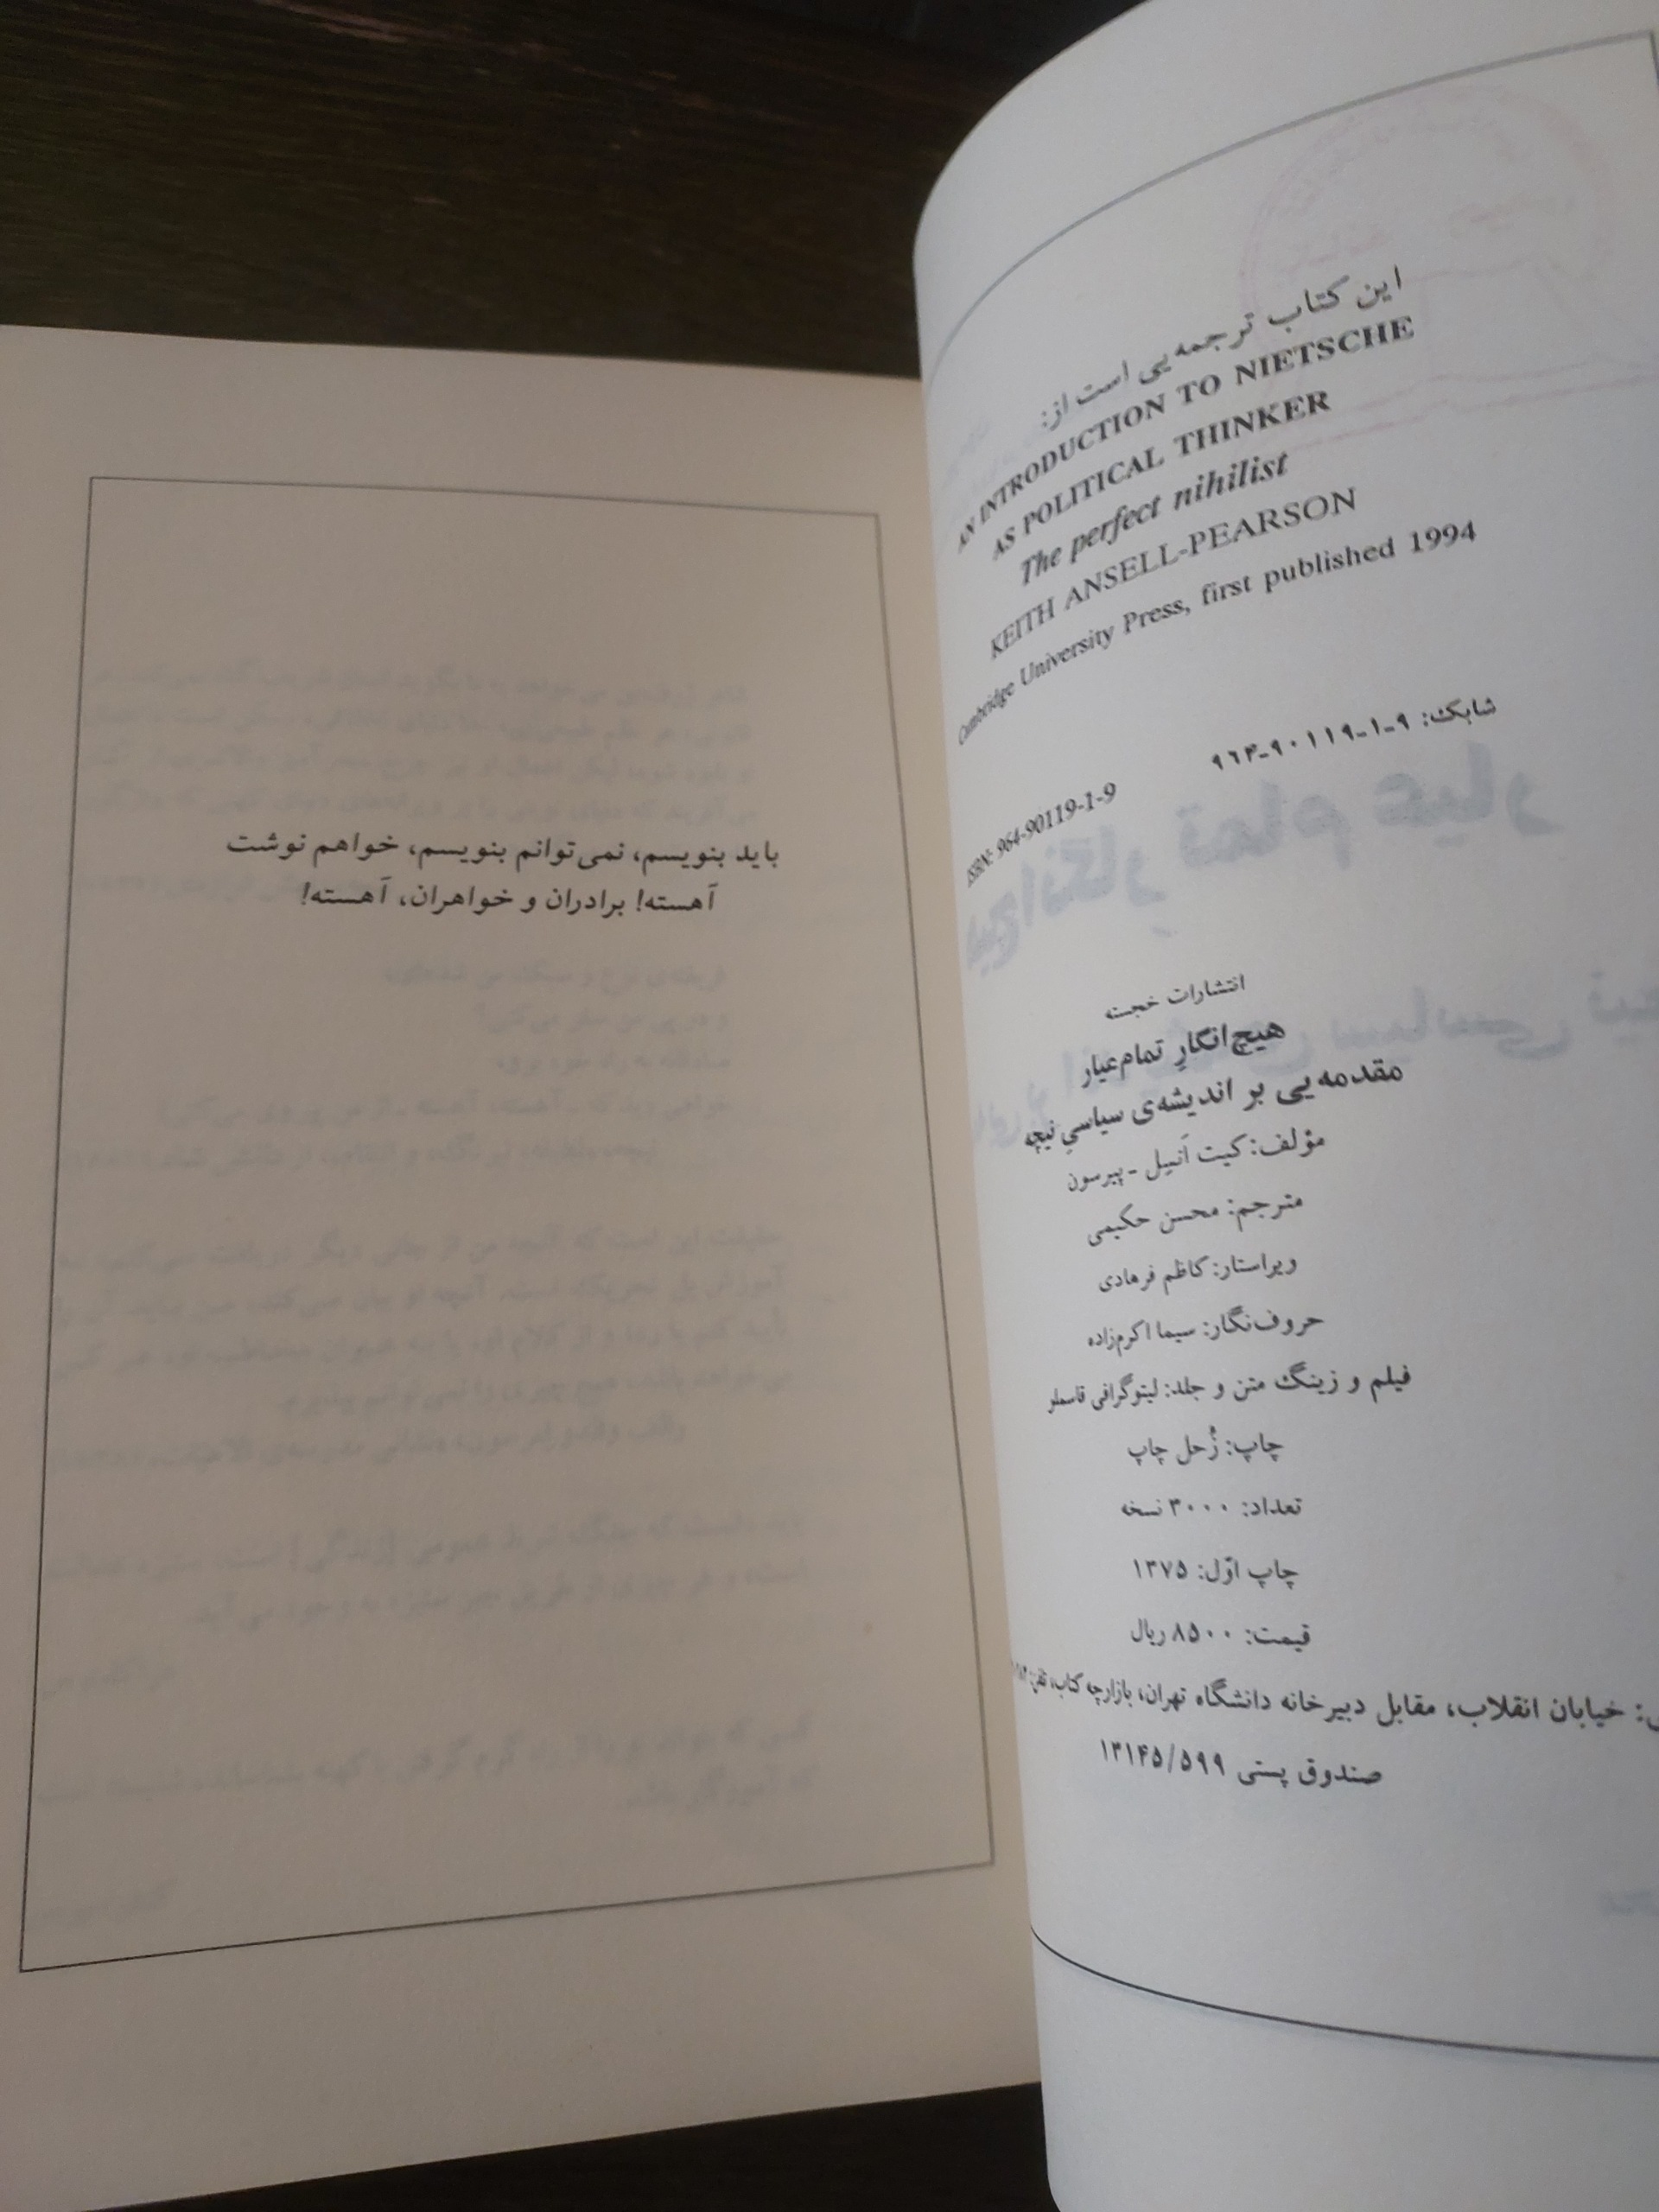 این کتاب ترجمه‌یی است از:
AN INTRODUCTION TO NIETSCHE
AS POLITICAL THINKER
The perfect nihilist
KEITH ANSELL-PEARSON
Cambridge University Press, first published 1994
شابک: ۹-۱-۹۰۱۱۹-۹۶۴
ISBN: 964-90119-1-9
انتشارات خجسته
هیچ‌انگارِ تمام‌عیار
مقدمه‌یی بر اندیشه‌ی سیاسیِ نیچه
مؤلف: کیت اَنسِل - پیرسون
مترجم: محسن حکیمی
ویراستار: کاظم فرهادی
حروف‌نگار: سیما اکرم‌زاده
فیلم و زینگ متن و جلد: لیتوگرافی قاسملو
چاپ: زُحل چاپ
تعداد: ۳۰۰۰ نسخه
چاپ اوّل: ۱۳۷۵
قیمت: ۸۵۰۰ ریال
خیابان انقلاب، مقابل دبیرخانه دانشگاه تهران، بازارچه کتاب، تلفن:
صندوق پستی ۱۳۱۴۵/۵۹۹
باید بنویسم، نمی‌توانم بنویسم، خواهم نوشت
آهسته! برادران و خواهران، آهسته!